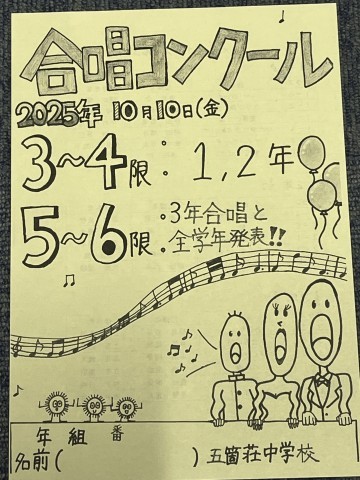 合唱コンクール
2025年 10月10日(金)
3〜4限：1,2年
5〜6限：3年合唱と
全学年発表!!
年 組 番
名前(　　　　　　) 五箇荘中学校